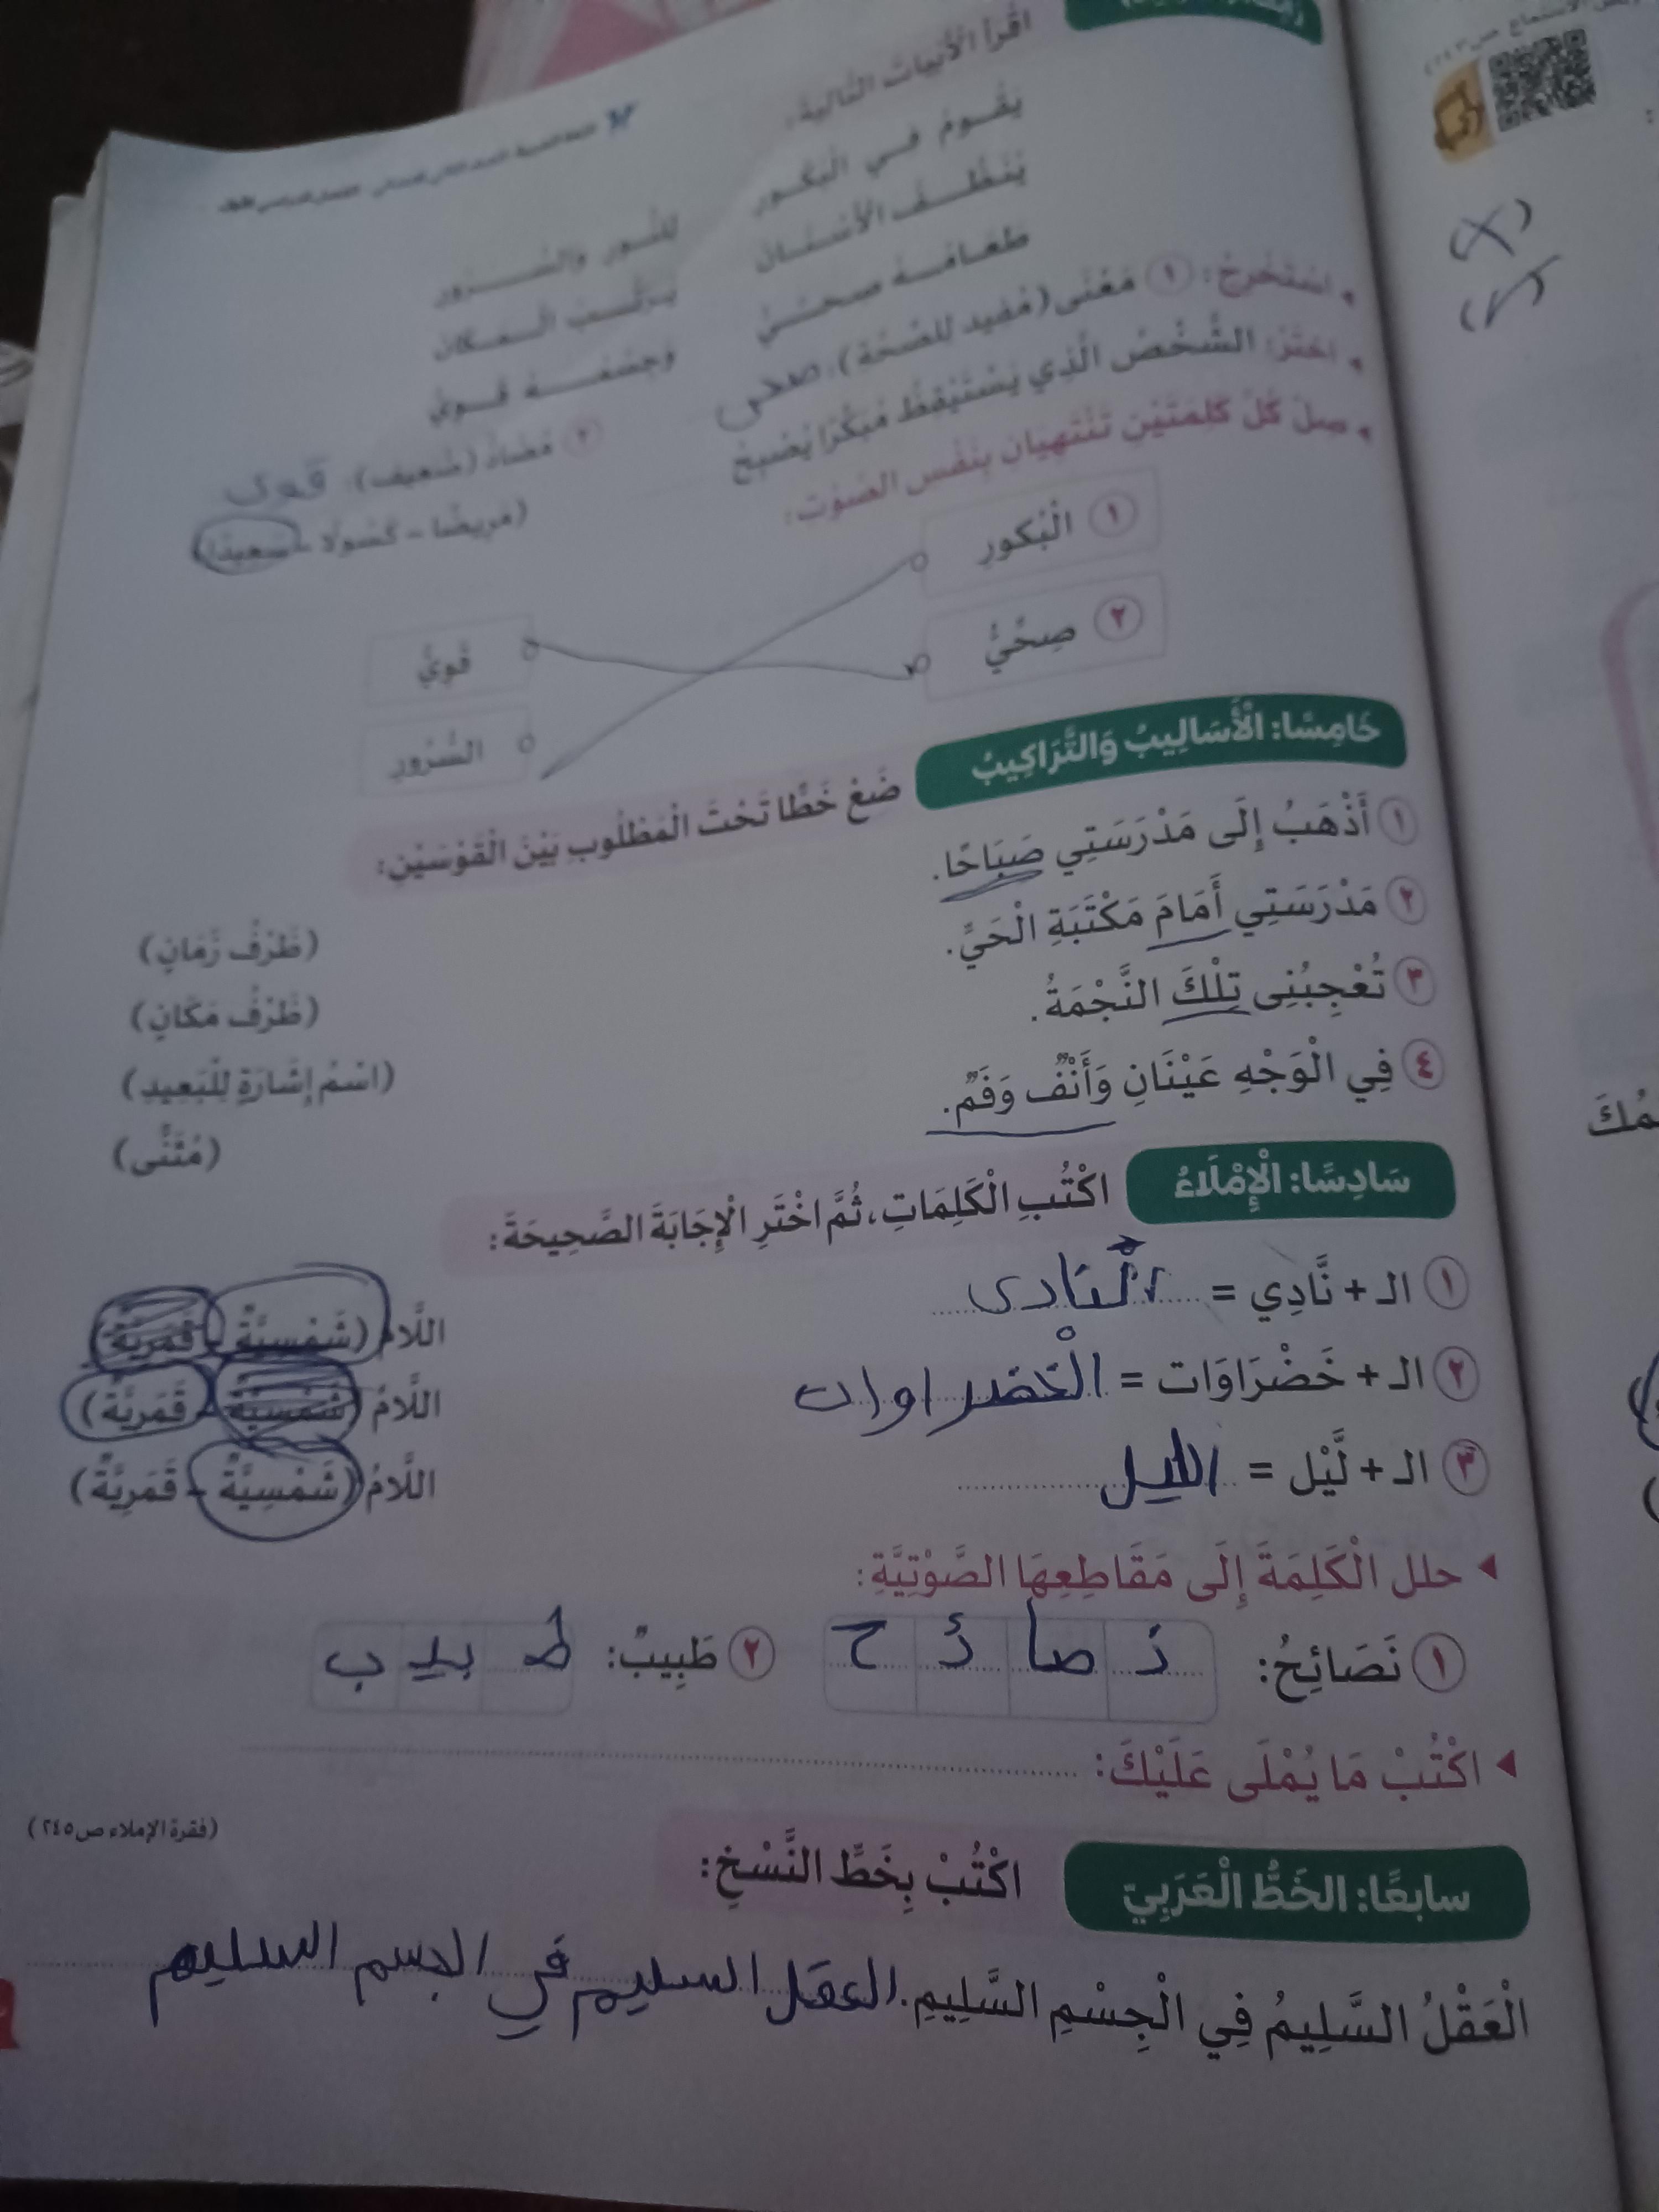 اقْرَأِ الْأَبْيَاتَ التَّالِيَةَ:
يَقُومُ فِي الْبُكُورِ لِلنُّورِ وَالسُّرُورِ
يُنَظِّفُ الْأَسْنَانَ يُرَتِّبُ الْمَكَانَ
طَعَامُهُ صِحِّيٌّ وَجِسْمُهُ قَوِيٌّ
اسْتَخْرِجْ: ١ مَعْنَى (مُفِيد لِلصِّحَّةِ): صحى ٢ مُضَادَّ (ضَعِيف): قوى
اخْتَرْ: الشَّخْصُ الَّذِي يَسْتَيْقِظُ مُبَكِّرًا يُصْبِحُ (مَرِيضًا - كَسُولًا - سَعِيدًا)
صِلْ كُلَّ كَلِمَتَيْنِ تَنْتَهِيَانِ بِنَفْسِ الصَّوْتِ:
١ الْبُكُورِ
٢ صِحِّيٌّ
قَوِيٌّ
السُّرُورِ
خَامِسًا: الْأَسَالِيبُ وَالتَّرَاكِيبُ ضَعْ خَطًّا تَحْتَ الْمَطْلُوبِ بَيْنَ الْقَوْسَيْنِ:
١ أَذْهَبُ إِلَى مَدْرَسَتِي صَبَاحًا. (ظَرْفُ زَمَانٍ)
٢ مَدْرَسَتِي أَمَامَ مَكْتَبَةِ الْحَيِّ. (ظَرْفُ مَكَانٍ)
٣ تُعْجِبُنِى تِلْكَ النَّجْمَةُ. (اسْمُ إِشَارَةٍ لِلْبَعِيدِ)
٤ فِي الْوَجْهِ عَيْنَانِ وَأَنْفٌ وَفَمٌ. (مُثَنًّى)
سَادِسًا: الْإِمْلَاءُ اكْتُبِ الْكَلِمَاتِ، ثُمَّ اخْتَرِ الْإِجَابَةَ الصَّحِيحَةَ:
١ الـ + نَّادِي = النادى اللَّامُ (شَمْسِيَّةٌ - قَمَرِيَّةٌ)
٢ الـ + خَضْرَاوَات = الْخضراوات اللَّامُ (شَمْسِيَّةٌ - قَمَرِيَّةٌ)
٣ الـ + لَّيْل = الليل اللَّامُ (شَمْسِيَّةٌ - قَمَرِيَّةٌ)
حلل الْكَلِمَةَ إِلَى مَقَاطِعِهَا الصَّوْتِيَّةِ:
١ نَصَائِحُ: نَ صا ئِ ح ٢ طَبِيبٌ: طَ بيـ ب
اكْتُبْ مَا يُمْلَى عَلَيْكَ:
(فقرة الإملاء ص٢٤٥)
سابعًا: الخَطُّ الْعَرَبِيّ اكْتُبْ بِخَطِّ النَّسْخِ:
الْعَقْلُ السَّلِيمُ فِي الْجِسْمِ السَّلِيمِ. العقل السليم في الجسم السليم